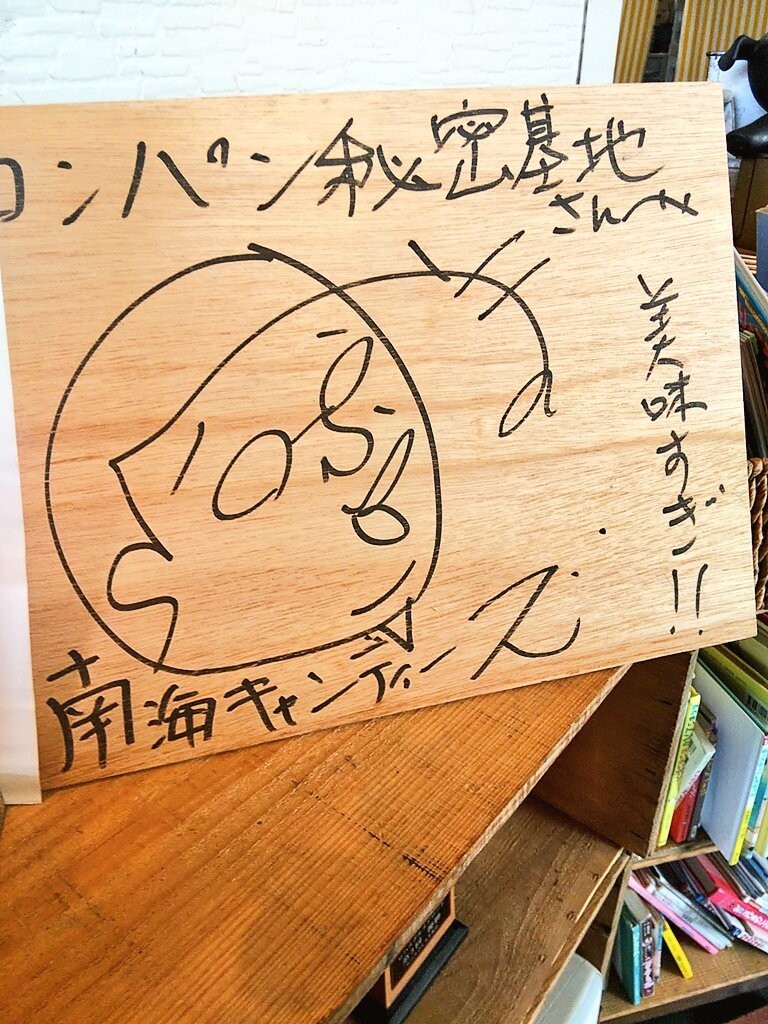 ロンパン秘密基地
さんへ
美味すぎ!!
南海キャンディーズ